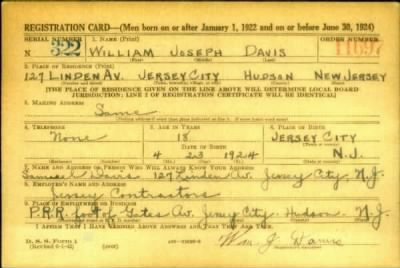 REGISTRATION CARD—(Men born on or after January 1, 1922 and on or before June 30, 1924)
SERIAL NUMBER 1. NAME (Print) ORDER NUMBER
N 322 WILLIAM JOSEPH DAVIS 11697
(First) (Middle) (Last)
2. PLACE OF RESIDENCE (Print)
127 LINDEN AV. JERSEY CITY HUDSON NEW JERSEY
(Number and street) (Town, township, village, or city) (County) (State)
[THE PLACE OF RESIDENCE GIVEN ON THE LINE ABOVE WILL DETERMINE LOCAL BOARD
JURISDICTION; LINE 2 OF REGISTRATION CERTIFICATE WILL BE IDENTICAL]
3. MAILING ADDRESS
Same
4. TELEPHONE 5. AGE IN YEARS 6. PLACE OF BIRTH
None 18 JERSEY CITY
DATE OF BIRTH
4 23 1924 N.J.
7. NAME AND ADDRESS OF PERSON WHO WILL ALWAYS KNOW YOUR ADDRESS
Samuel Davis 127 Linden Av. Jersey City, N.J.
8. EMPLOYER'S NAME AND ADDRESS
Jersey Contractors
9. PLACE OF EMPLOYMENT OR BUSINESS
P.R.R. foot of Gates Av. Jersey City Hudson N.J.
I AFFIRM THAT I HAVE VERIFIED ABOVE ANSWERS AND THAT THEY ARE TRUE.
D. S. S. Form 1
Wm. J. Davis